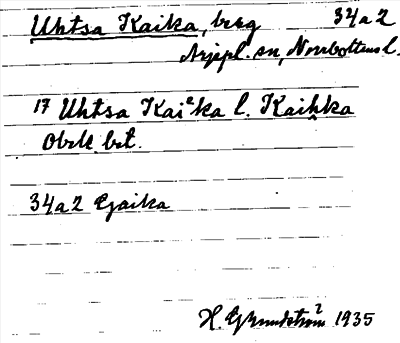 Uhtsa Kaika, berg 34a2
Arjepl. sn, Norrbottens l.
17 Uhtsa Kaiᵉka l. Kaihka
Obekt. brt.
34a2 Gaika
H. Grundström 1935